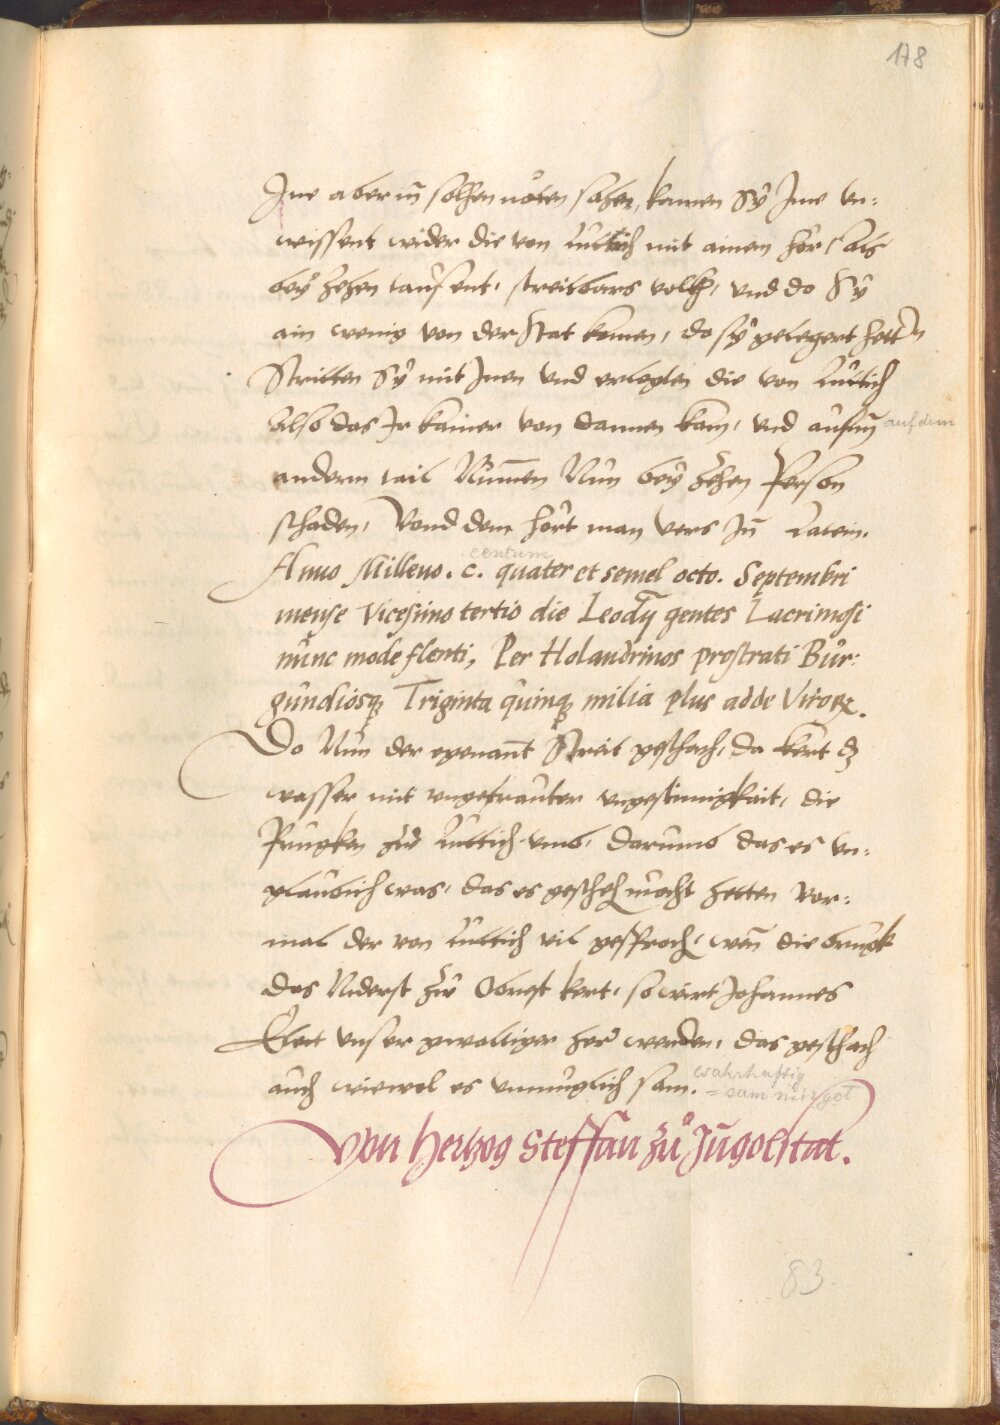 178
Ine aber in̄ solhen nöten sahen, kamen Sÿ Ime vn=
wissent wider die von Lüttich mit ainem hör, als
beÿ zehen tausent, streitbars volkh, vnd do Sÿ
ain wenig von der Stat komen, do sÿ gelegert hettn
Stritten Sÿ mit Inen vnd erlegten die von Lüttich
Also das Ir kainer von dannen kam, vnd aufm̄ auf dem
andern tail Nūmen Nun beÿ zehen Person
schaden, Vond dem hört man vers In̄ Latein.
centum
Anno Milleno . c . quater et semel octo. Septembri
mense Vicesimo tertio die Leodÿ gentes Lacrimosi
nunc mode flenti, Per Holandrinos prostrati Bur:
gundiosqȝ Triginta quinqȝ milia plus adde Viroꝝ.
Do Nun der egenant̄ Streit geschach, da kert dȝ
wasser mit vngetrauter vngestimigkait, die
Prugken zů Lüttich vmb, darumb das es vn=
glaublich was, das es geschehn mocht hetten Vor=
mal der von Lüttich vil gesproch, wen̄ die bruck
das Niderst zů Obrest kert, so wirt Johannes
Elect vnser gwaltiger her werden, das geschach
auch wiewol es vnmuglich sam. wahrhaftig
= sam mir got
Von Hertzog Steffan zů Ingolstat.
83